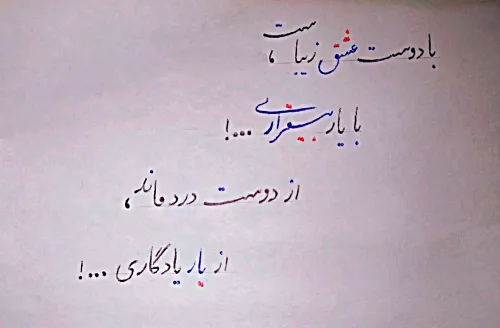 با دوست عشق زیباست،
با یار بیقراری...!
از دوست درد ماند،
از یار یادگاری...!